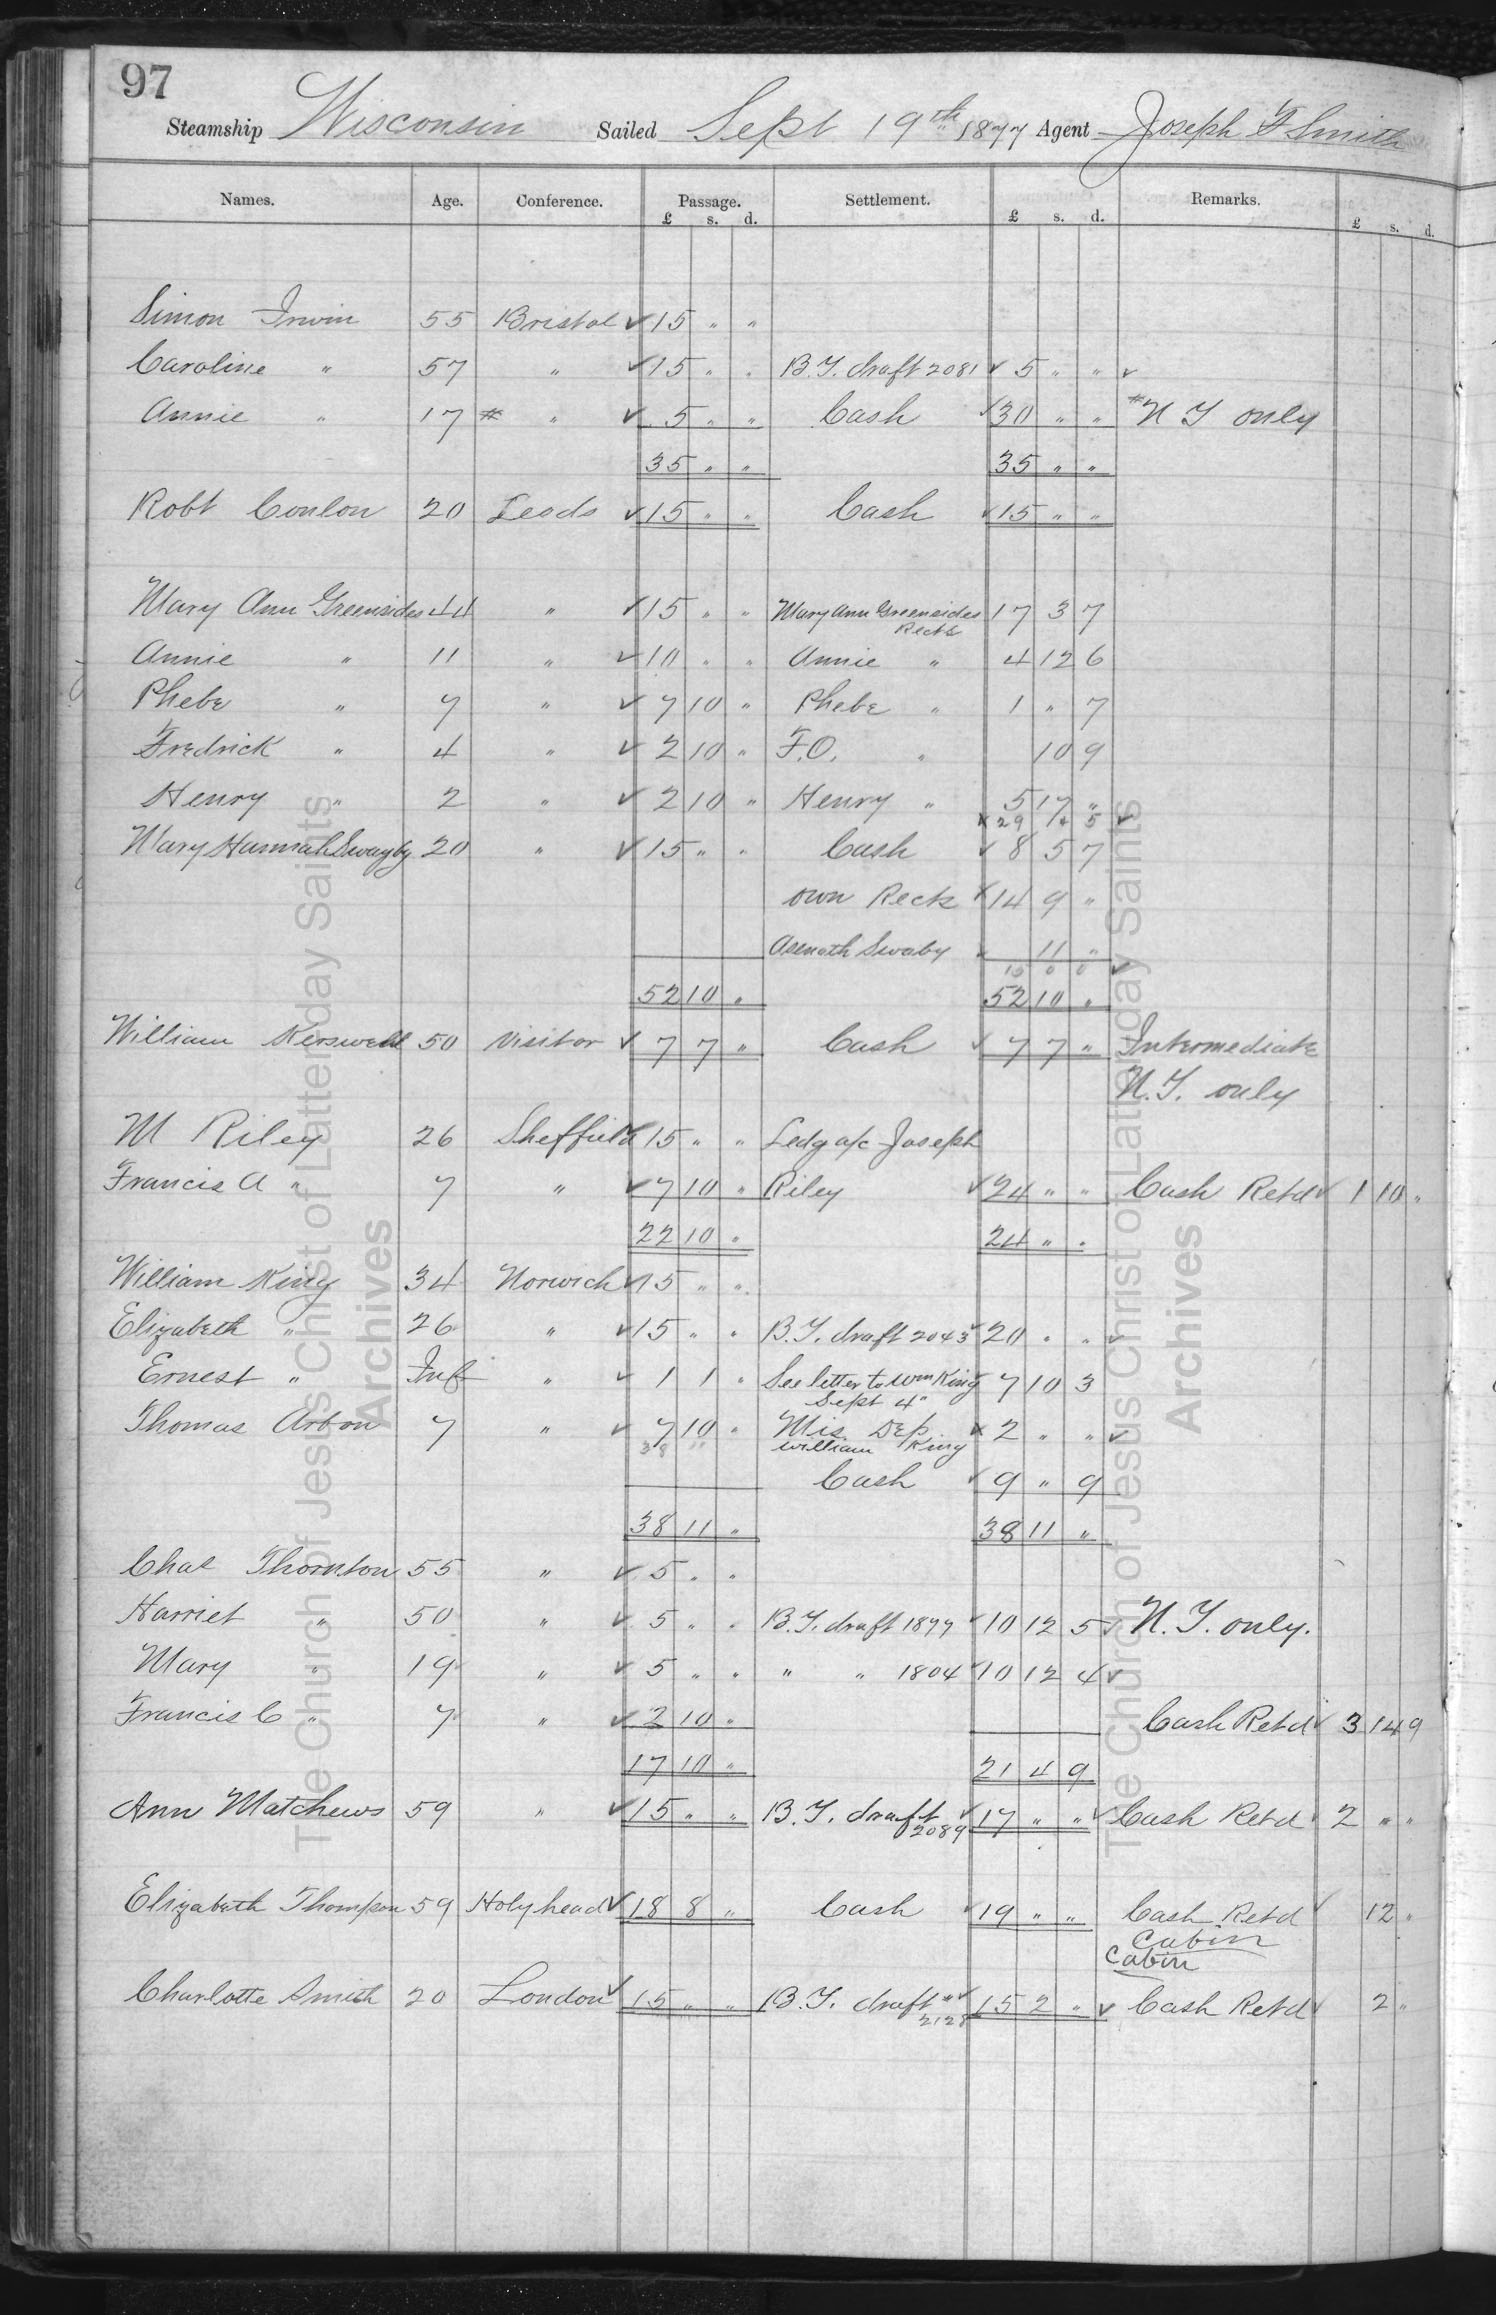 97
Steamship Wisconsin Sailed Sept 19th 1877 Agent Joseph F Smith
Names. Age. Conference. Passage. Settlement. Remarks.
£ s. d. £ s. d. £ s. d.
Simon Irwin 55 Bristol ✓ 15 " "
Caroline " 57 " ✓ 15 " " B.Y. draft 2081 ✓ 5 " " ✓
Annie " 17 # " ✓ 5 " " Cash ✓ 30 " " # N Y only
35 " " 35 " "
Robt Conlon 20 Leeds ✓ 15 " " Cash ✓ 15 " "
Mary Ann Greensides 44 " ✓ 15 " " Mary Ann Greensides 17 3 7
Rects
Annie " 11 " ✓ 10 " " Annie " 4 12 6
Phebe " 7 " ✓ 7 10 " Phebe " 1 " 7
Fredrick " 4 " ✓ 2 10 " F.O. " 10 9
Henry " 2 " ✓ 2 10 " Henry " 5 17 "
✓ 29 4 5 ✓
Mary Hannah Swayby 20 " ✓ 15 " " Cash ✓ 8 5 7
own Rects ✓ 14 9 "
Asenath Swaby 11 "
15 0 0 ✓
52 10 " 52 10 "
William Kerswell 50 Visitor ✓ 7 7 " Cash ✓ 7 7 " Intermediate
N.Y. only
M Riley 26 Sheffield ✓ 15 " " Ledg a/c Joseph
Francis A " 7 " ✓ 7 10 " Riley ✓ 24 " " Cash Retd ✓ 1 10 "
22 10 " 24 " "
William King 34 Norwich ✓ 15 " "
Elizabeth " 26 " ✓ 15 " " B.Y. draft 2043 ✓ 20 " " ✓
Ernest " Inf " ✓ 1 1 " See letter to Wm King 7 10 3
Sept 4"
Thomas Arbon 7 " ✓ 7 10 " Mis. Dep. ✓ 2 " " ✓
38 11 William King
Cash ✓ 9 " 9
38 11 " 38 11 "
Chas Thornton 55 " ✓ 5 " "
Harriet " 50 " ✓ 5 " " B.Y. draft 1877 ✓ 10 12 5 ✓ N.Y. only.
Mary " 19 " ✓ 5 " " " " 1804 ✓ 10 12 4 ✓
Francis C " 7 " ✓ 2 10 " Cash Retd ✓ 3 14 9
17 10 " 21 4 9
Ann Matchews 59 " ✓ 15 " " B.Y. draft ✓ 17 " " ✓ Cash Retd 2 " "
2089
Elizabeth Thompson 59 Holyhead ✓ 18 8 " Cash ✓ 19 " " Cash Retd ✓ 12 "
Cabin
Cabin
Charlotte Smith 20 London ✓ 15 " " B.Y. draft ✓ 15 2 " ✓ Cash Retd ✓ 2 "
2128
The Church of Jesus Christ of Latter-day Saints
Archives
The Church of Jesus Christ of Latter-day Saints
Archives